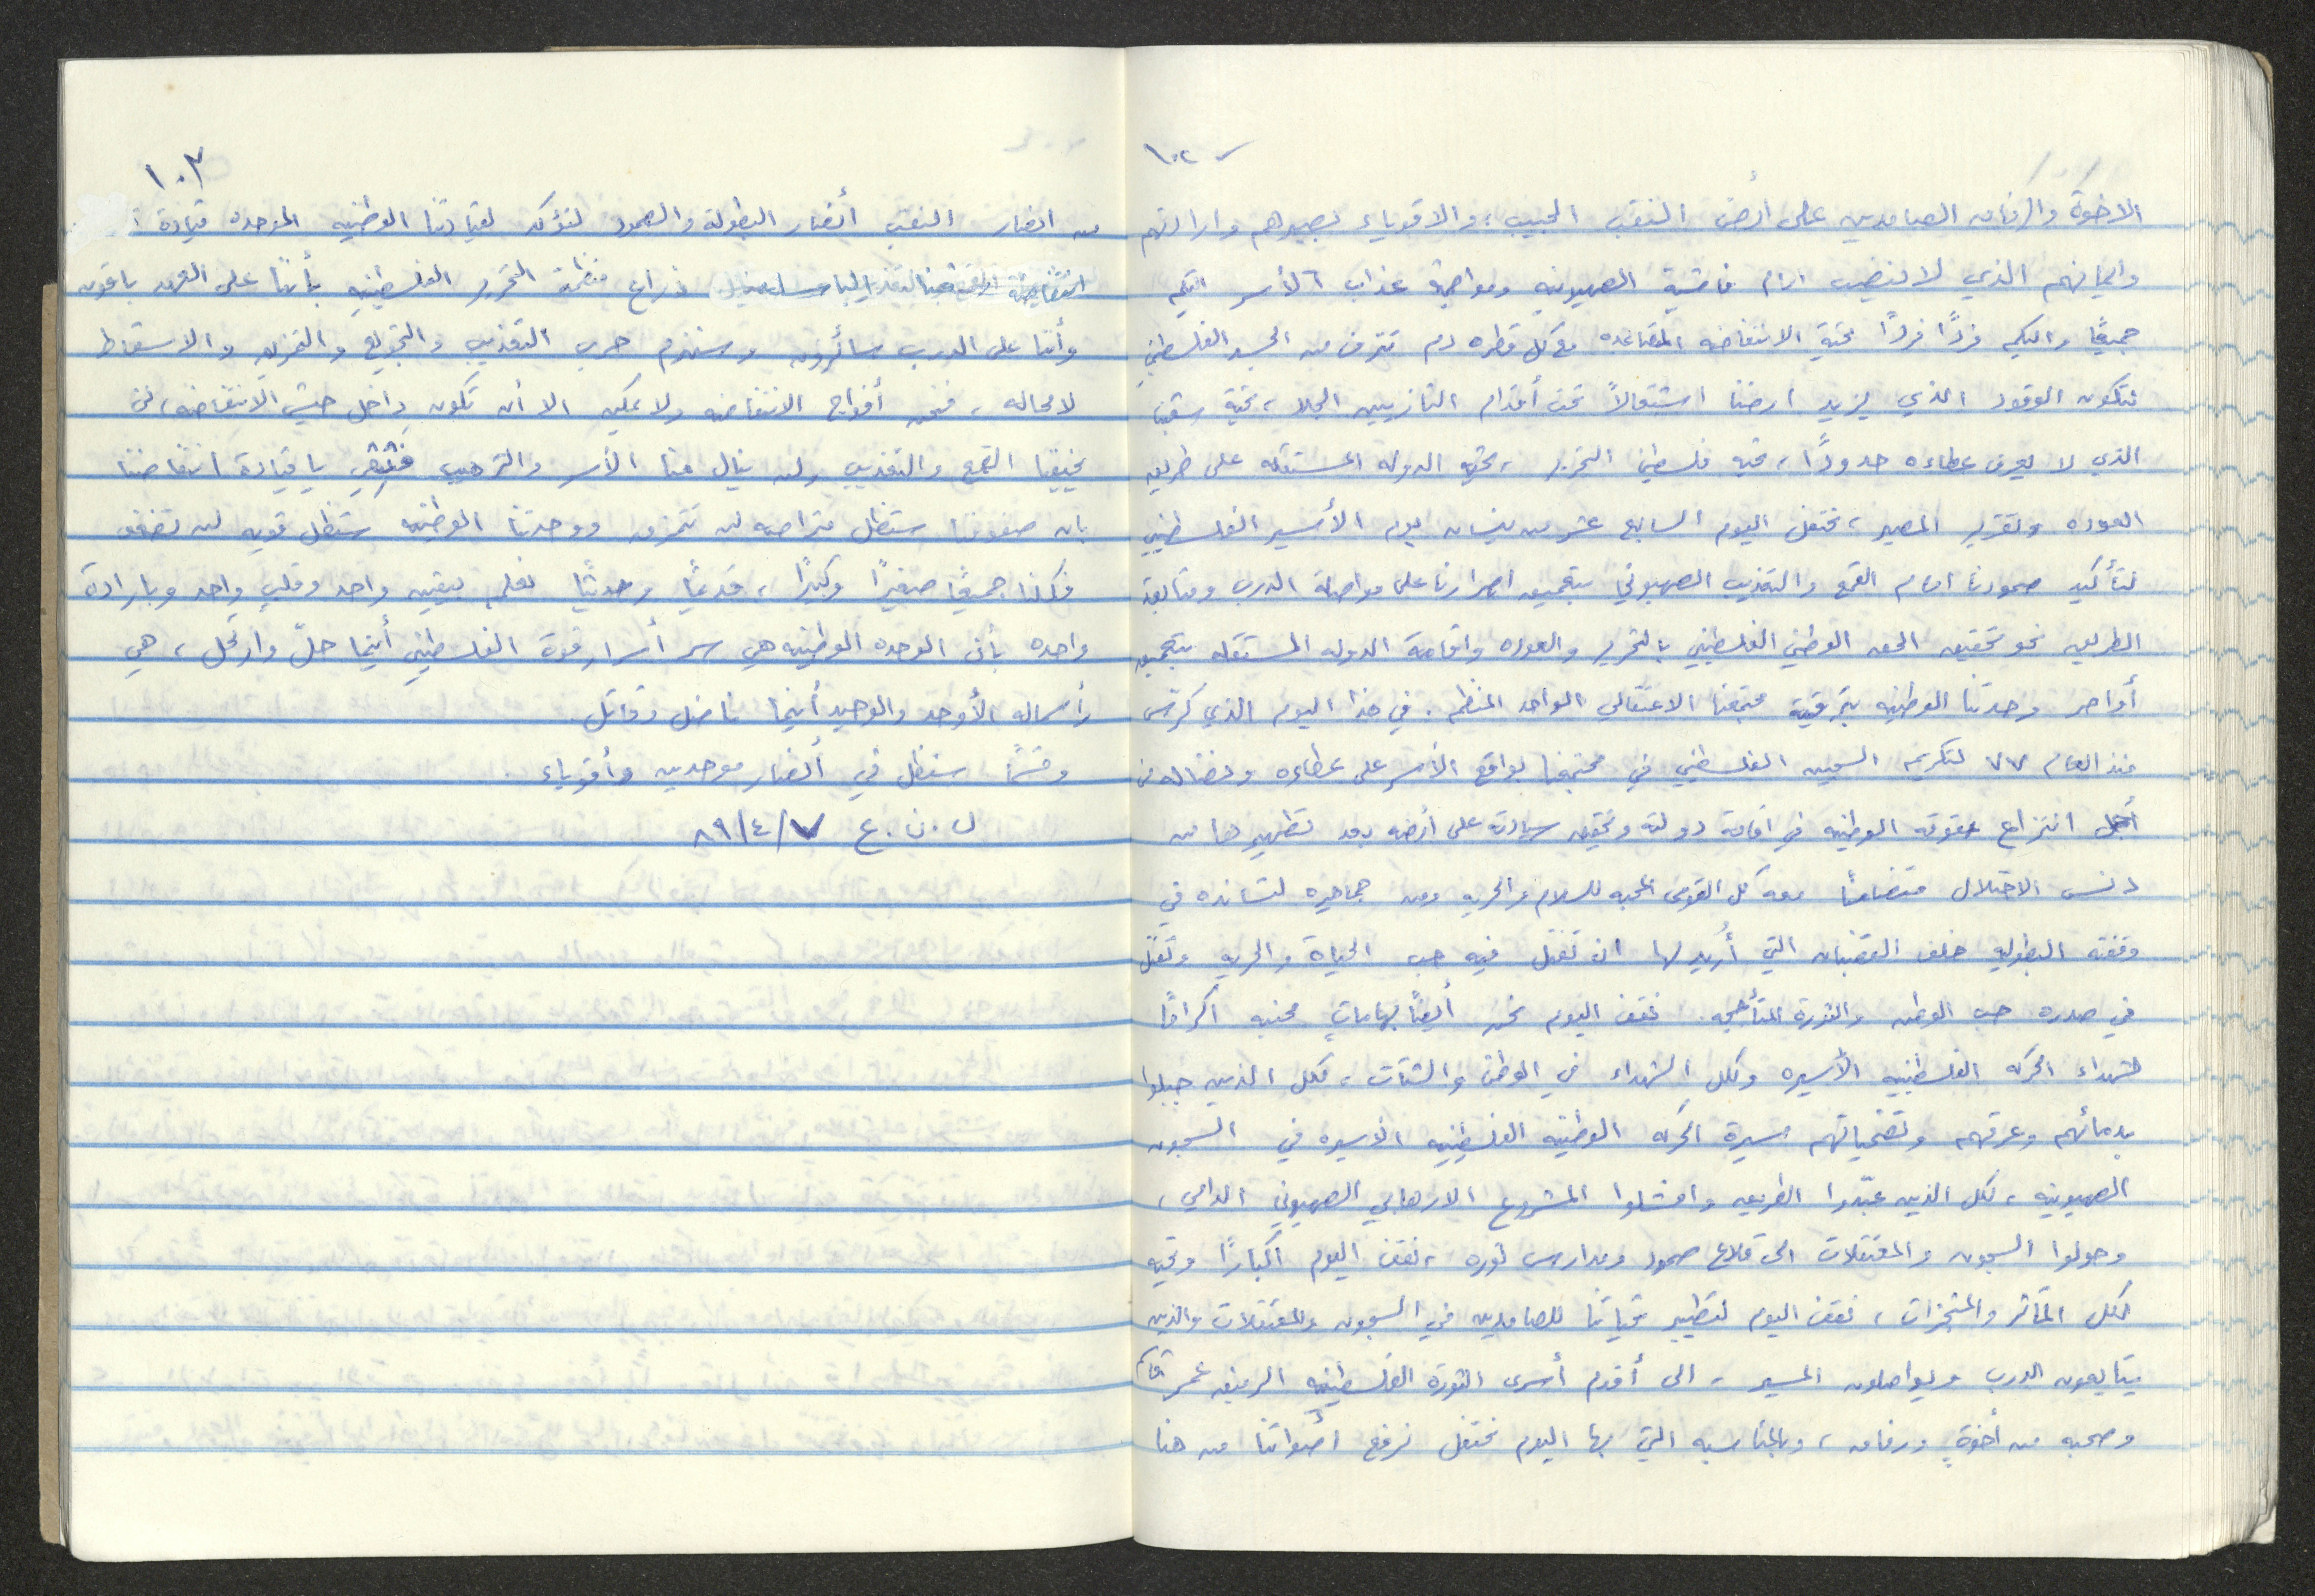 ١٠٢
الاخوة والرفاق الصامدين على أرض النقب الحبيب، والاقوياء بصبرهم وارادتهم
وايمانهم الذي لا ينضب امام فاشية الصهيونيه ومواجهة عذاب الأسر اليكم
جميعًا واليكم فردًا فردًا تحية الانتفاضه المتصاعده مع كل قطره دم تنزف من الجسد الفلسطيني
لتكون الوقود الذي يزيد ارضنا اشتعالاً تحت أقدام النازيين الجدد، تحية شعبنا
الذي لا يعرف عطاءه حدودًا، تحيه فلسطين التحرير، تحيه الدوله المستقله على طريق
العوده وتقرير المصير، نحتفل اليوم السابع عشر من نيسان يوم الأسير الفلسطيني
لتأكيد صمودنا امام القمع والتعذيب الصهيوني بتعميق اصرارنا على مواصلة الدرب ومتابعة
الطريق نحو تحقيق الحق الوطني الفلسطيني بالتحرير والعوده واقامة الدوله المستقله بتعميق
أواصر وحدتنا الوطنيه بترقية مجتمعنا الاعتقالي الواحد المنظم. في هذا اليوم الذي كرس
منذ العام ٧٧ لتكريم السجين الفلسطيني في مجتمعنا بواقع الأسر على عطاءه ونضاله من
أجل انتزاع حقوقه الوطنيه في اقامة دولته وتحقيق سيادته على أرضه بعد تطهيرها من
دنس الاحتلال متضامنًا معه كل القوى المحبه للسلام والحريه ومن جماهيره لتسانده في
وقفته البطوليه خلف القضبان التي أُريد لها ان تقتل فيه حب الحياة والحريه وتقتل
في صدره حب الوطن والثورة المتأججه. نقف اليوم نحن أيضًا بهاماتٍ محنيه اكرامًا
لشهداء الحركه الفلسطينيه الأسيره ولكل الشهداء في الوطن والشتات، لكل الذين جبلوا
بدمائهم وعرقهم وتضحياتهم مسيرة الحركه الوطنيه الفلسطينيه الأسيره في السجون
الصهيونيه، لكل الذين عبّدوا الطريق وافشلوا المشروع الارهابي الصهيوني الدامي،
وحولوا السجون والمعتقلات الى قلاع صمود ومدارس ثوره، نقف اليوم اكبارًا وتحيه
لكل المآثر والمنجزات، نقف اليوم لتطيير تحياتنا للصامدين في السجون والمعتقلات والذين
يتابعون الدرب ويواصلون المسير، الى أقدم أسرى الثورة الفلسطينيه الرفيق عمر قاسم
وصحبه من أخوةٍ ورفاق، وبالمناسبه التي بها اليوم نحتفل نرفع أصواتنا من هنا
١٠٣
من انصار النقب أنصار البطولة والصمود لنؤكد لقيادتنا الوطنيه الموحده قيادة
انتفاضة ذراع منظمة التحرير الفلسطينيه بأننا على العهد باقون
وأننا على الدرب سائرون وسنهزم حرب التعذيب والتجويع والتعزيل والاسقاط
لا محاله، فنحن أفواج الانتفاضه ولا يمكن الا أن نكون داخل جيش الانتفاضه، لن
يخيفنا القمع والتعذيب ولن ينال منا الأسر والترهيب فثقي يا قيادة انتفاضتنا
بان صفوفنا ستظل متراصه لن تتمزق ووحدتنا الوطنيه ستظل قويه لن تضعف
فكلنا جميعًا صغيرًا وكبيرًا، قديمًا وحديثًا نعلم بيقين واحد وقلب واحد وبارادة
واحده بأن الوحده الوطنيه هي سر أسرار قوة الفلسطيني أينما حلّ وارتحل، هي
رأسماله الأوحد والوحيد أينما ناضل وقاتل
وختمًا سنظل في أنصار موحدين وأقوياء.
ل.ن.ع ٨٩/٤/٧